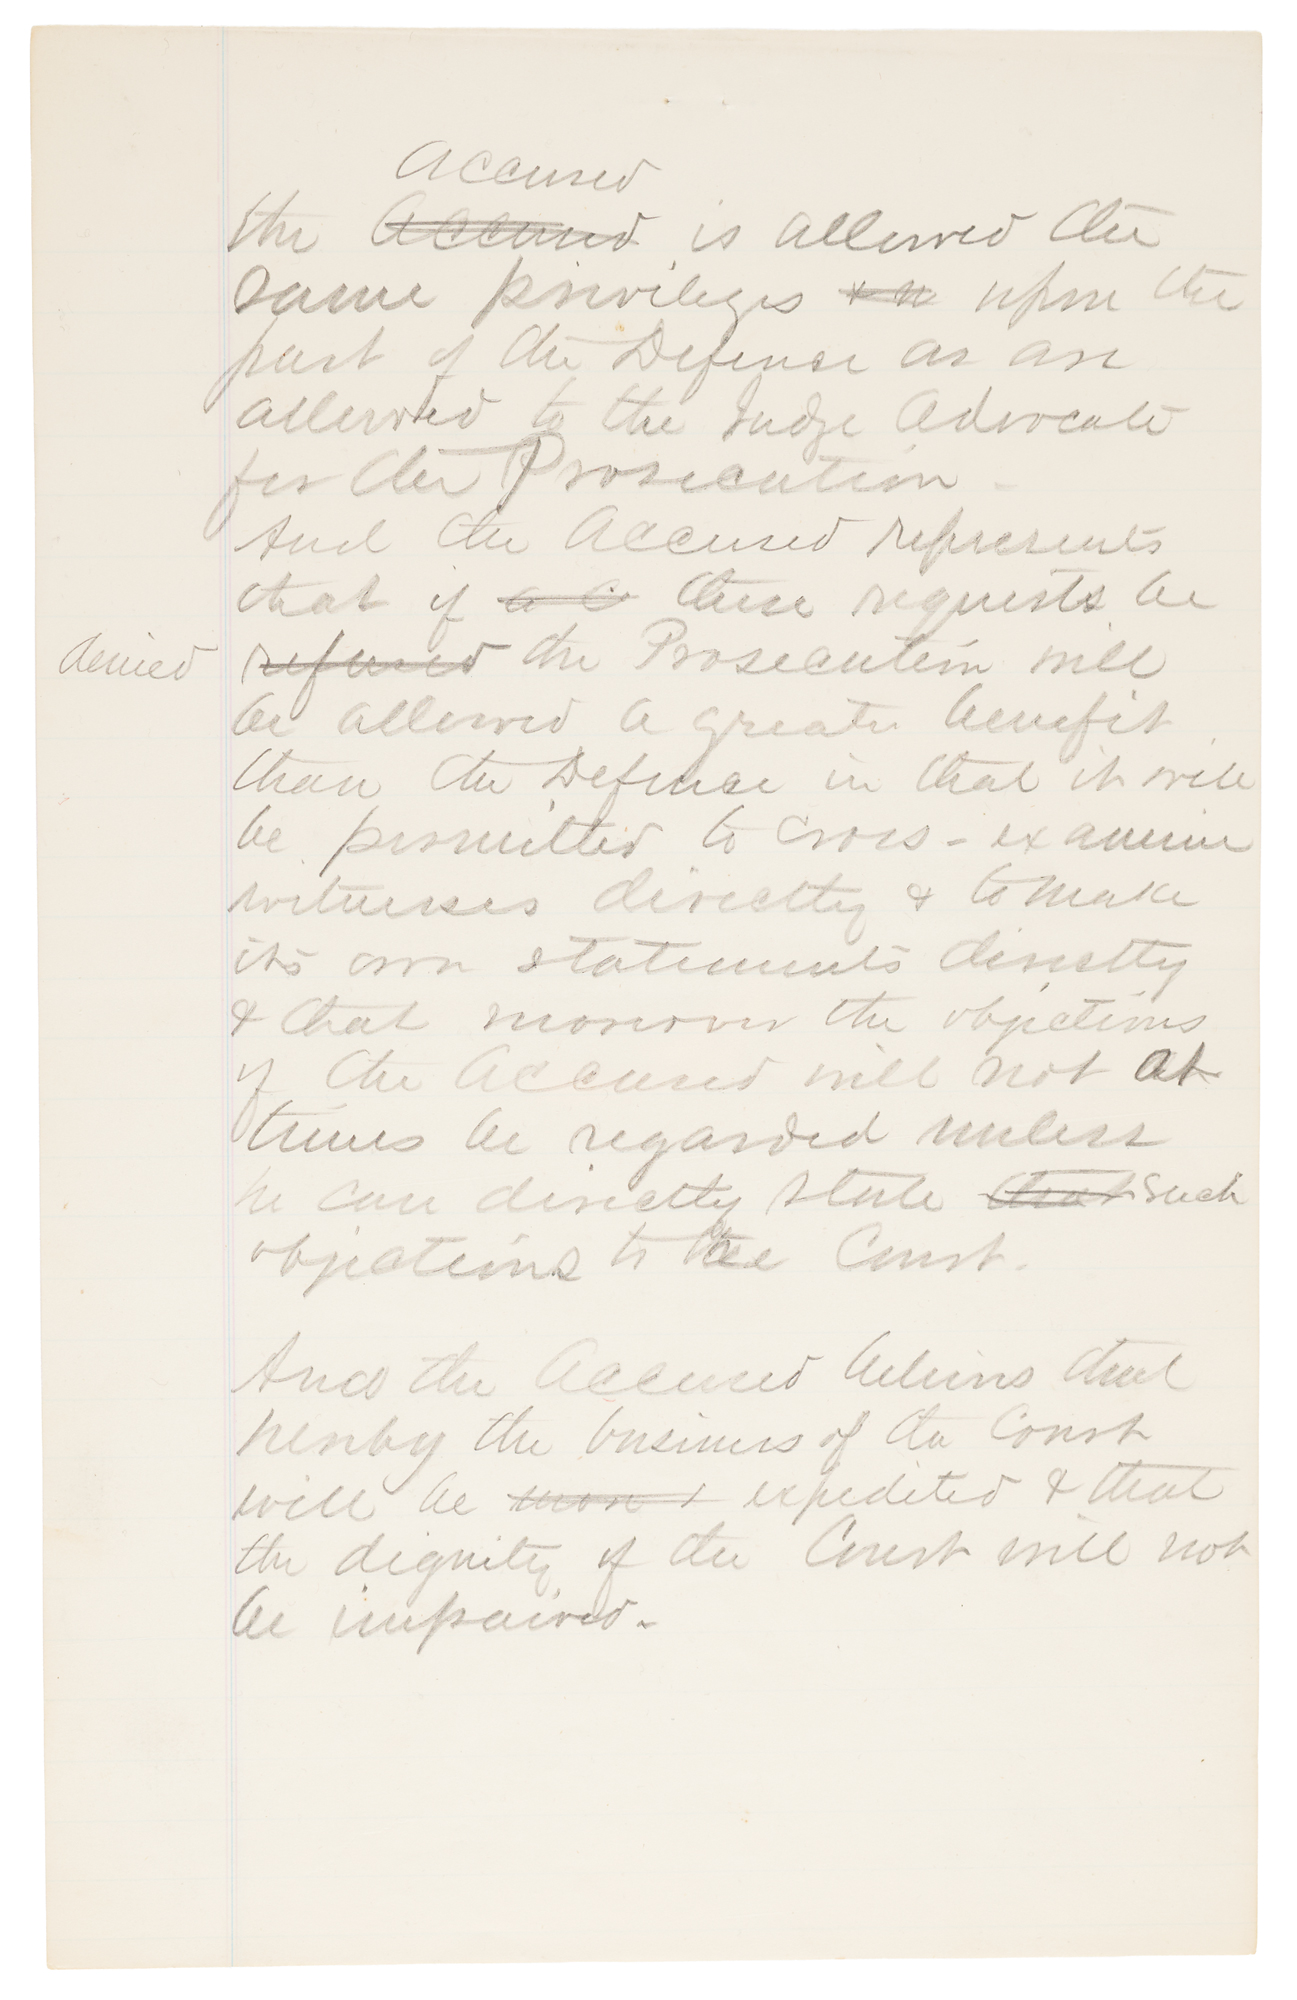 Accused
the Accused is allowed the
same privileges upon the
part of the Defense as are
allowed to the Judge Advocate
for the Prosecution -
And the Accused represents
that if a C these requests be
denied refused the Prosecution will
be allowed a greater benefit
than the Defense in that it will
be permitted to cross-examine
witnesses directly & to make
its own statements directly
& that moreover the objections
of the Accused will not at
times be regarded unless
he can directly state that such
objections to the Court.
And the Accused believes that
hereby the business of the Court
will be more expedited & that
the dignity of the Court will not
be impaired.